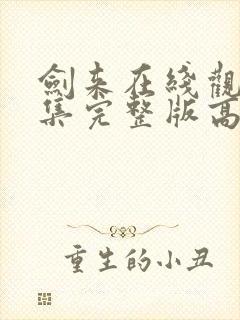 劍来在綫觀
集完整版高
重生的小丑